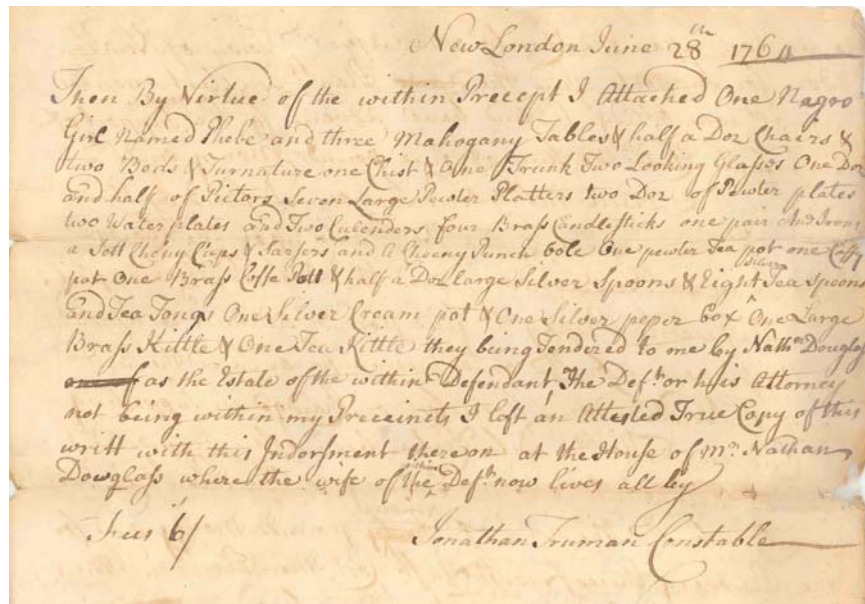 New London June 28th 1764
Then By Virtue of the within Precept I Attached One Negro
Girl Named Phebe and three Mahogany Tables & half a Doz Chairs &
two Beds & Furnature one Chist & One Trunk Two Looking Glasses One Doz
and half of Pictors Seven Large Pewter Platters two Doz of Pewter plates
two Water plates and Two Culenders four Brass Candlesticks one pair And Irons
a Sett Cheny Cups & Sarsers and a Cheeny Punch bole One pewter Tea pot one Coffy
pot One Brass Coffe Pott & half a Doz large Silver Spoons & Eight Silver Tea Spoons
and Tea Tongs One Silver Cream pot & One Silver peper box One Large
Brass Kittle & One Tea Kittle they being Tendered to me by Nathn Douglass
as the Estate of the within Defendant The Deft or his Attorney
not being within my Precincts I left an Attested True Copy of this
writt with this Indorsment there on at the House of Mr Nathan
Dowglass where the wife of the within Deft now lives all by
Fees 6/ Jonathan Truman Constable